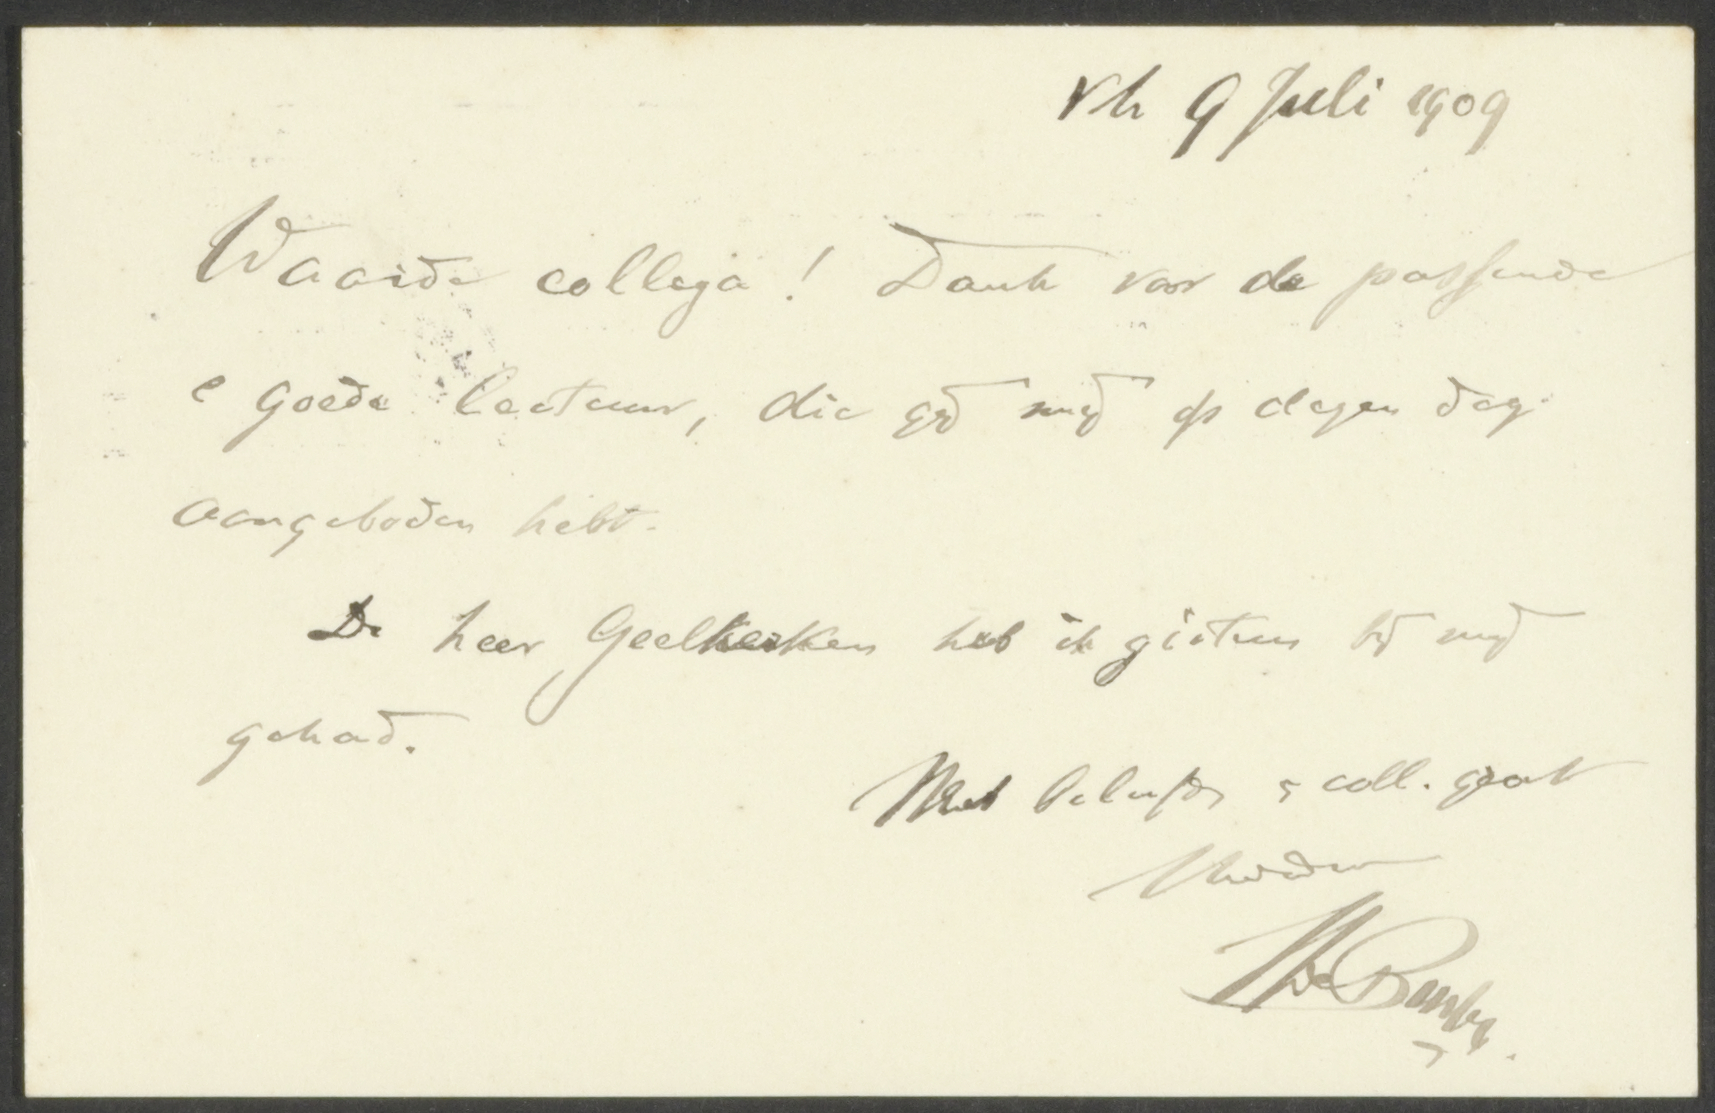 Vh 9 Juli 1909
Waarde collega! Dank voor de passende
e goede lectuur, die gij mij op dezen dag
aangeboden hebt.
De heer Geelkerken heb ik gisteren bij mij
gehad.
Met coll. groet